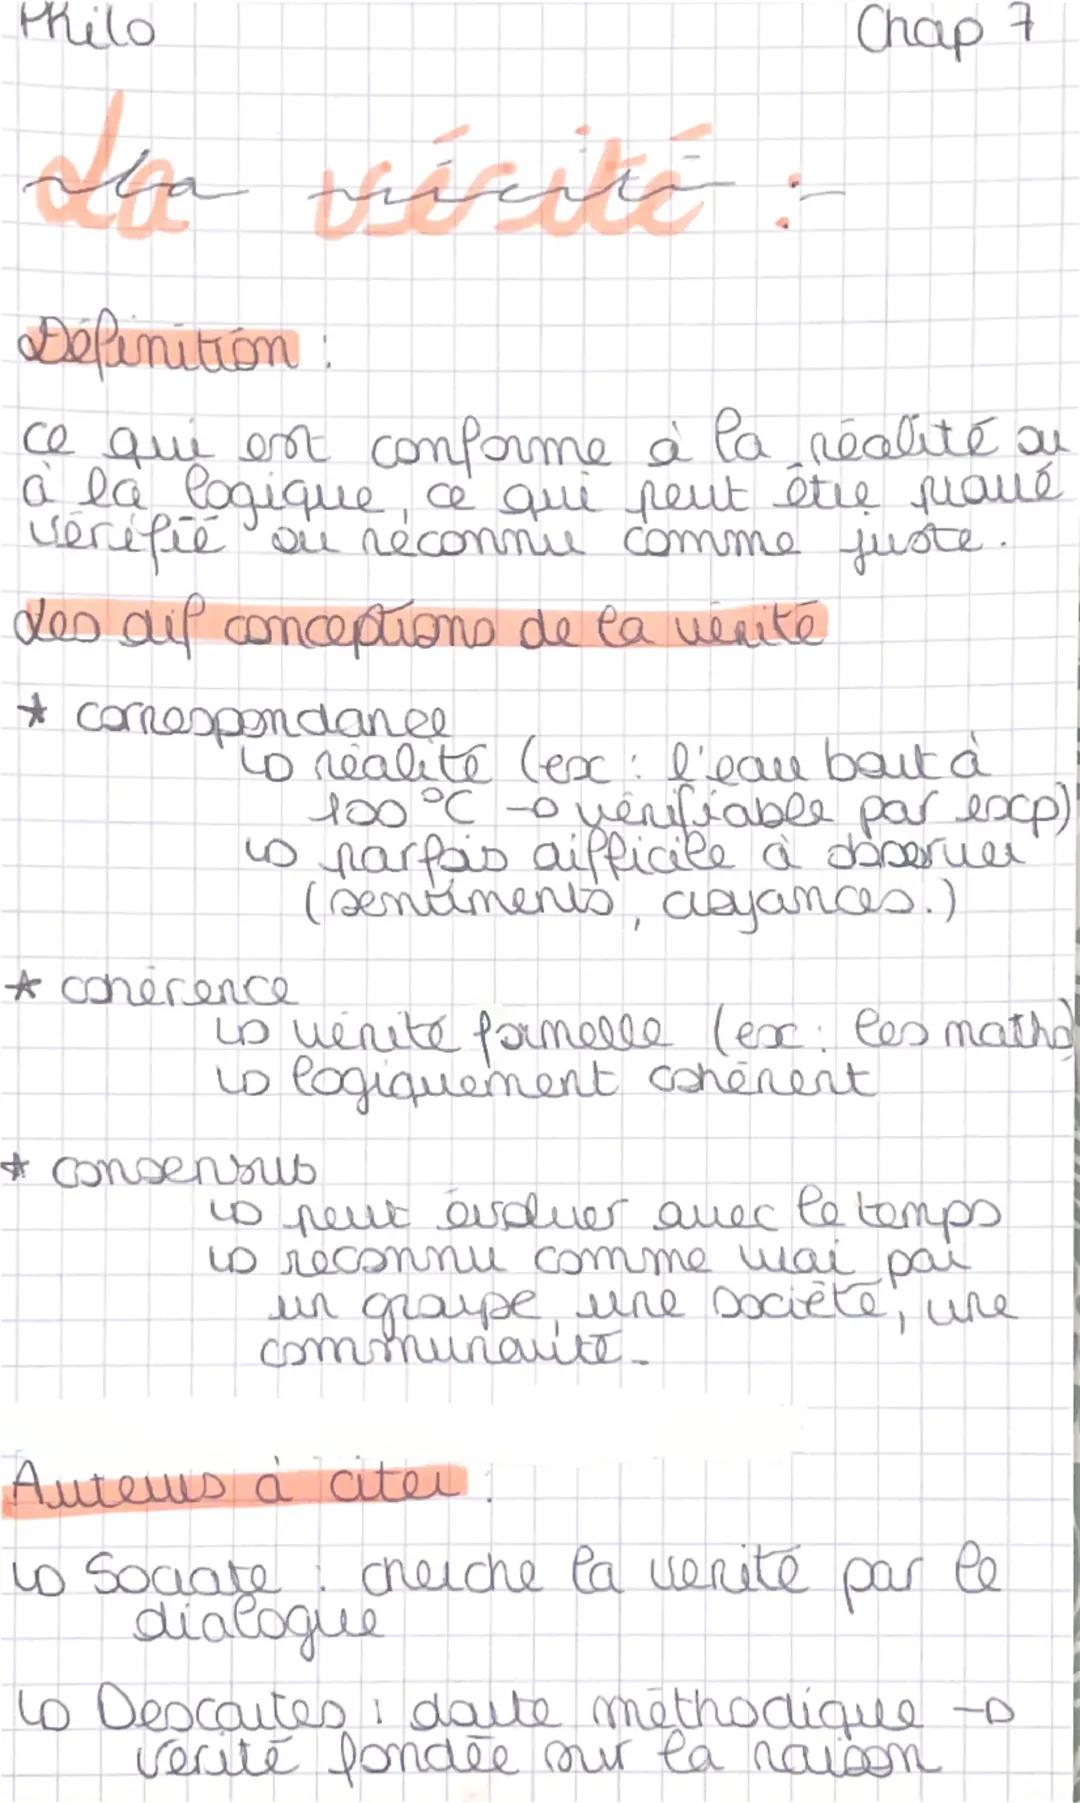 Philo Chap 7
La vérité :
Définition :
ce qui est conforme à la réalité ou
à la logique, ce qui peut être prouvé
vérifié ou reconnu comme juste.
Les dif conceptions de la vérité
* correspondance
↳ réalité (ex : l'eau bout à
100°C → vérifiable par exp)
↳ parfois difficile à observer
(sentiments, croyances.)
* cohérence
↳ vérité formelle (ex : les maths)
↳ logiquement cohérent
* consensus
↳ peut évoluer avec le temps
↳ reconnu comme vrai par
un groupe, une société, une
communauté.
Auteurs à citer :
↳ Socrate : cherche la vérité par le
dialogue
↳ Descartes : doute méthodique →
vérité fondée sur la raison